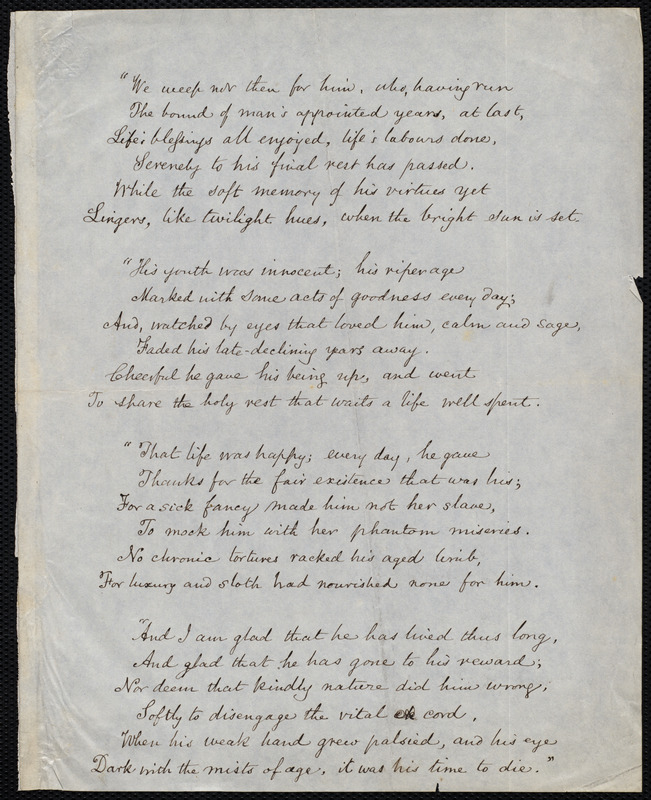 "We weep not then for him, who, having run
The bound of man's appointed years, at last,
Life's blessings all enjoyed, life's labours done,
Serenely to his final rest has passed.
While the soft memory of his virtues yet
Lingers, like twilight hues, when the bright sun is set.
"His youth was innocent; his riper age
Marked with some acts of goodness every day;
And, watched by eyes that loved him, calm and sage,
Faded his late-declining years away.
Cheerful he gave his being up, and went
To share the holy rest that waits a life well spent.
"That life was happy; every day, he gave
Thanks for the fair existence that was his;
For a sick fancy made him not her slave,
To mock him with her phantom miseries.
No chronic tortures racked his aged limb,
For luxury and sloth had nourished none for him.
"And I am glad that he has lived thus long,
And glad that he has gone to his reward;
Nor deem that kindly nature did him wrong,
Softly to disengage the vital cord.
When his weak hand grew palsied, and his eye
Dark with the mists of age, it was his time to die."